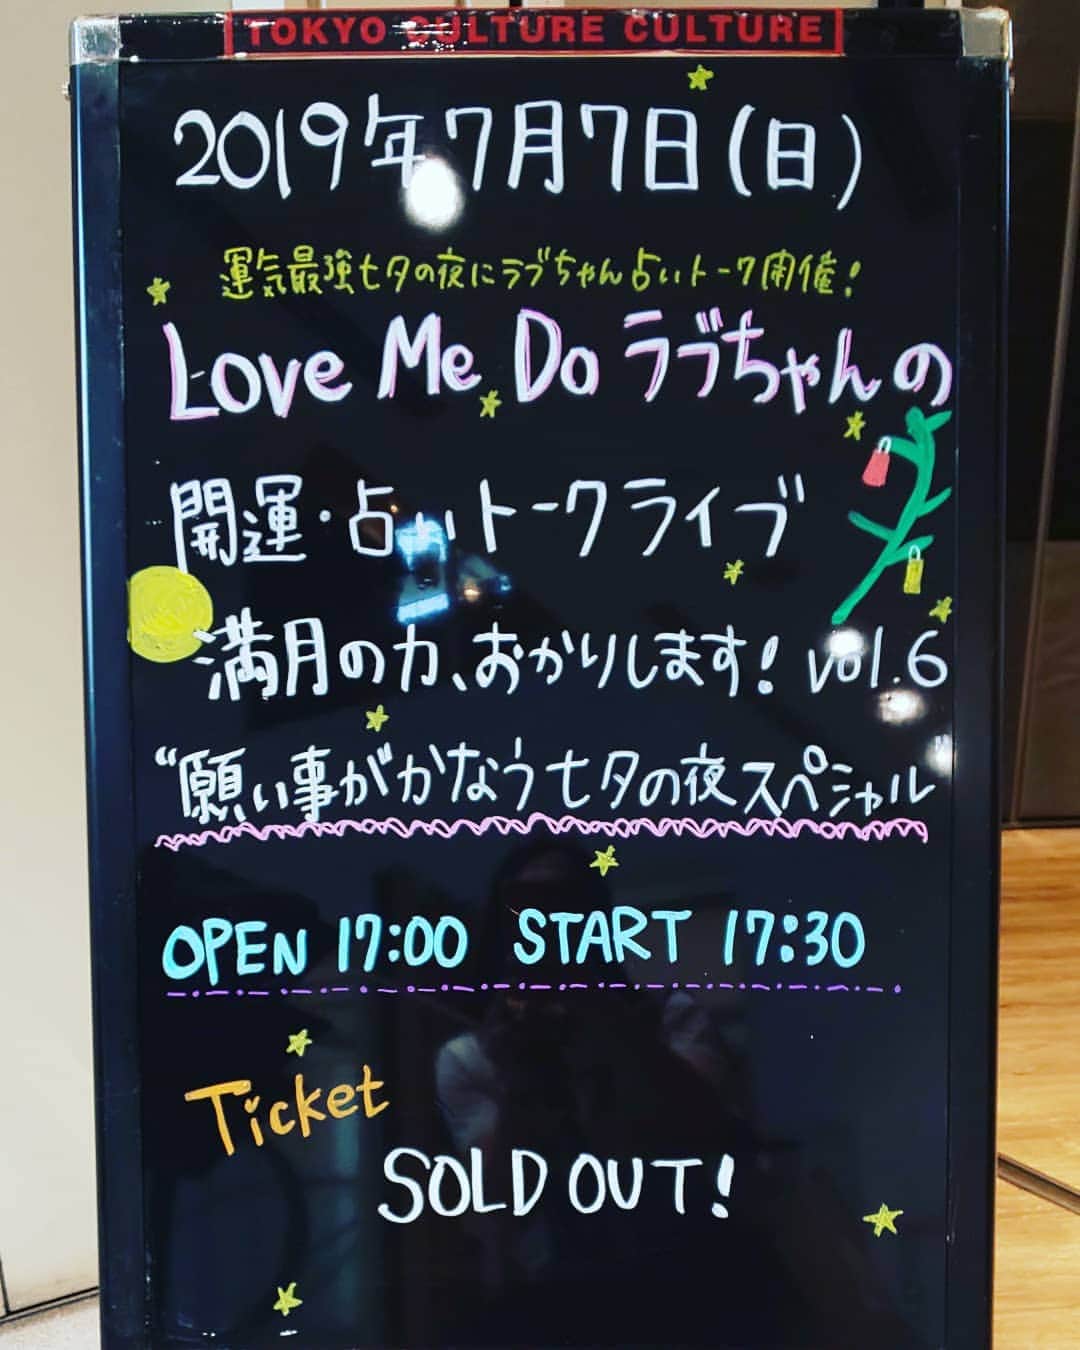 TOKYO CULTURE CULTURE
2019年7月7日(日)
運気最強七夕の夜にラブちゃん占いトーク開催！
Love Me Do ラブちゃんの
開運・占いトークライブ
満月の力、おかりします！ vol.6
“願い事がかなう七夕の夜スペシャル”
OPEN 17:00 START 17:30
Ticket
SOLD OUT！